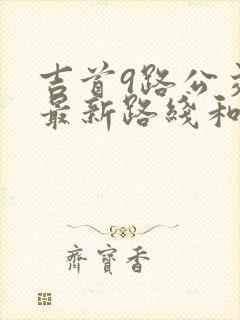 吉首9路公交
最新路线和
齊寶香